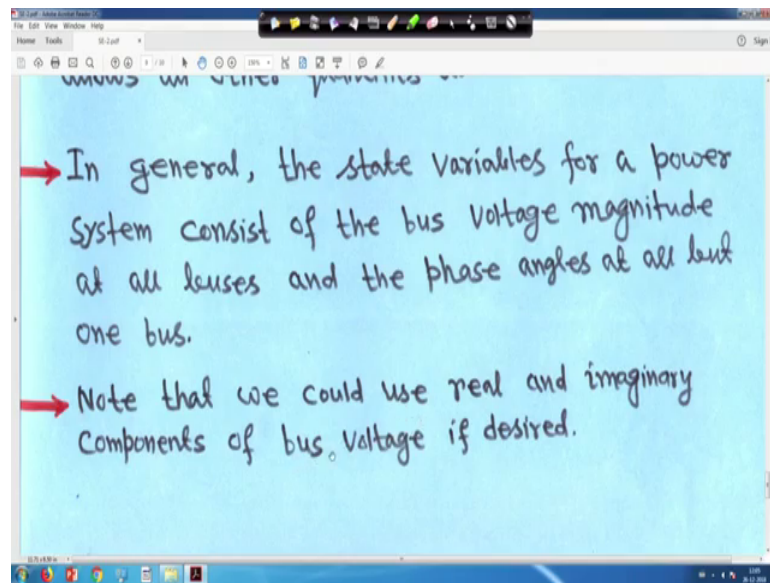 SE-2.pdf - Adobe Acrobat Reader DC
File Edit View Window Help
Home Tools SE-2.pdf × Sign
In general, the state variables for a power
system consist of the bus voltage magnitude
at all buses and the phase angles at all but
one bus.
Note that we could use real and imaginary
components of bus voltage if desired.